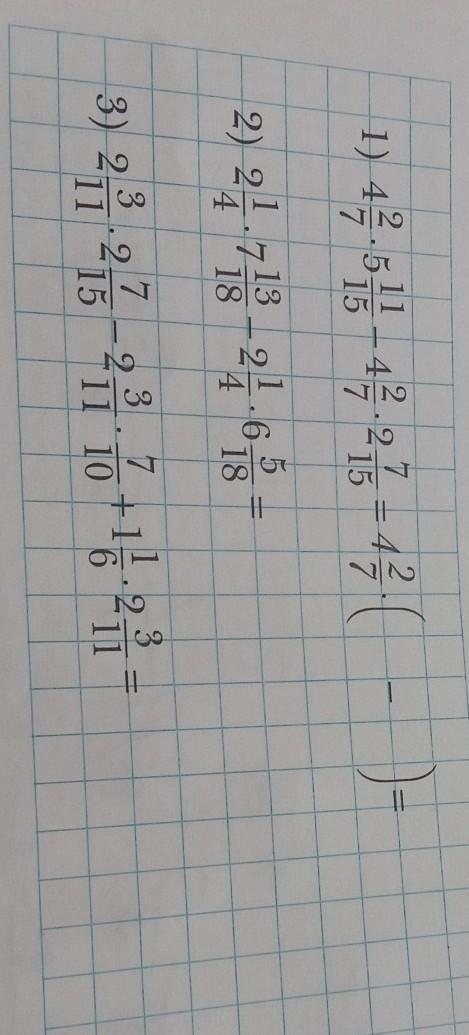 1) 4 2/7 · 5 11/15 − 4 2/7 · 2 7/15 = 4 2/7 · ( − ) =
2) 2 1/4 · 7 13/18 − 2 1/4 · 6 5/18 =
3) 2 3/11 · 2 7/15 − 2 3/11 · 7/10 + 1 1/6 · 2 3/11 =